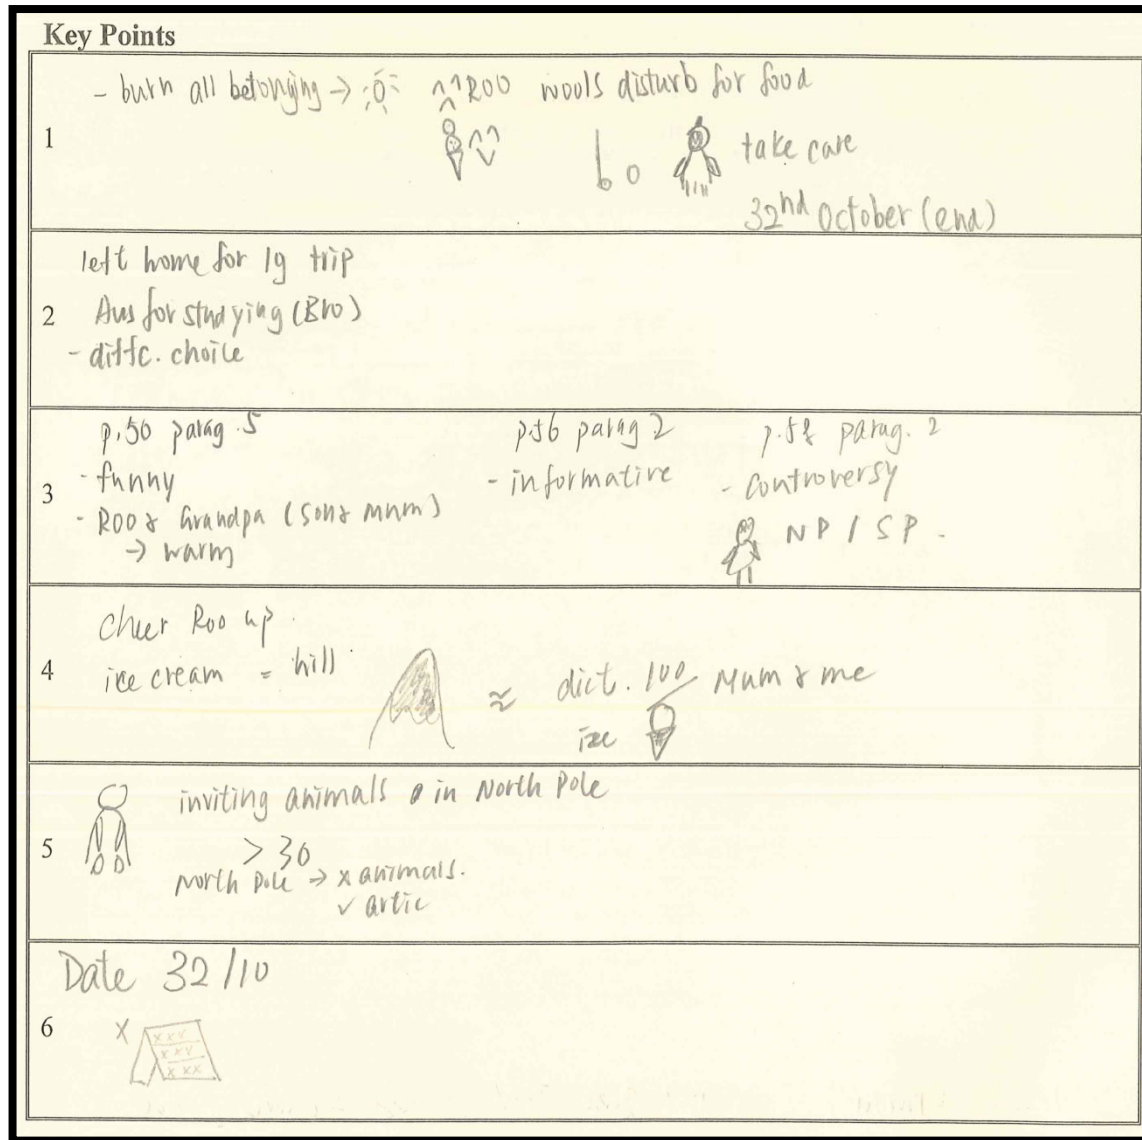 Key Points
1
- burn all belonging → ROO wools disturb for food
take care
32nd October (end)
2
left home for lg trip
Aus for studying (Bro)
- diffc. choice
3
p.50 parag. 5
- funny
- ROO & Grandpa (son & mum)
→ warm
p.56 parag 2
- informative
p.58 parag. 2
- controversy
NP / SP.
4
cheer Roo up.
ice cream = hill
≈ dict. 100 Mum & me
ice
5
inviting animals in North Pole
> 30
North Pole → x animals.
✓ artic
6
Date 32/10
X
x x v
x x v
x x x